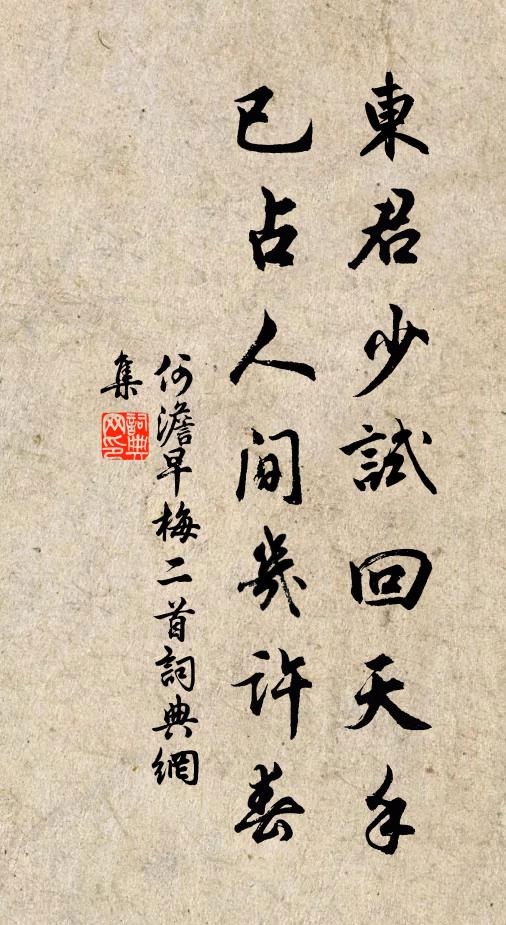 東君少試回天手
已占人間幾許春
何澹早梅二首詞典網
集
詞典
网印